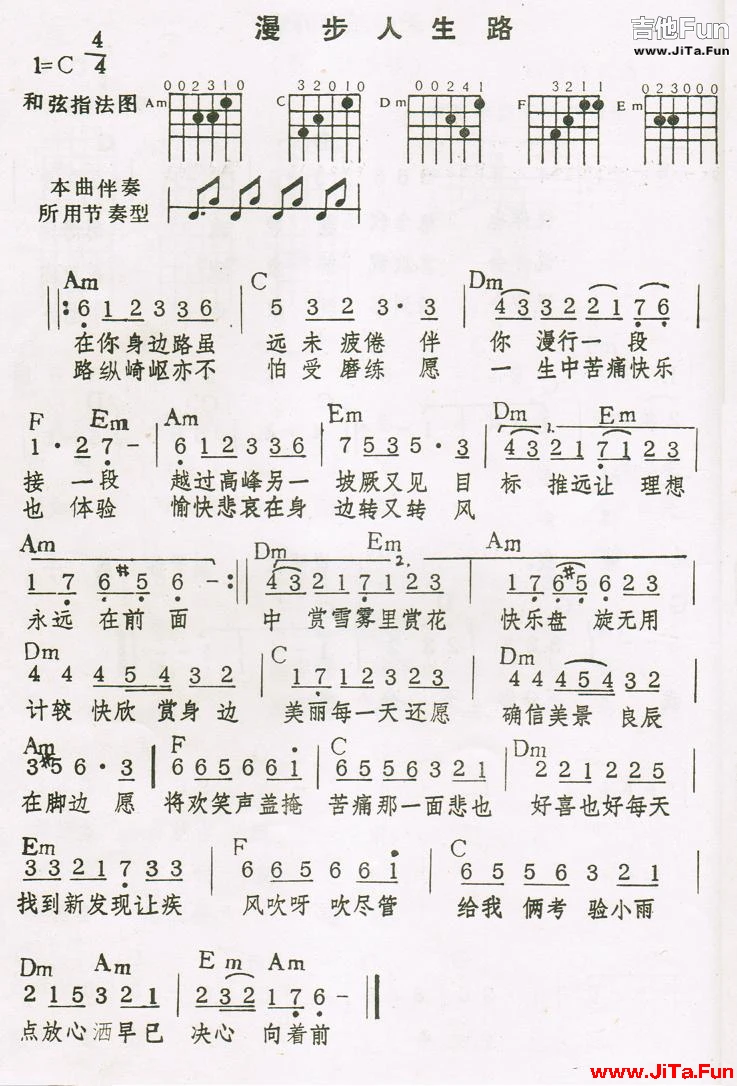 漫步人生路
吉他Fun
www.JiTa.Fun
1=C 4/4
和弦指法图 Am 002310 C 32010 Dm 00241 F 3211 Em 023000
本曲伴奏
所用节奏型
Am C Dm
‖: 6 1 2 3 3 6 | 5 3 2 3 · 3 | 4 3 3 2 2 1 7 6 |
在你身边路虽 远未疲倦伴 你漫行一段
路纵崎岖亦不 怕受磨练愿 一生中苦痛快乐
F Em Am Em Dm Em
1 · 2 7 - | 6 1 2 3 3 6 | 7 5 3 5 · 3 | 1. 4 3 2 1 7 1 2 3
接一段 越过高峰另一 坡厥又见目 标推远让理想
也体验 愉快悲哀在身 边转又转风
Am Dm Em Am
1 7 6 #5 6 - :‖ 2. 4 3 2 1 7 1 2 3 | 1 7 6 #5 6 2 3 |
永远在前面 中赏雪雾里赏花 快乐盘旋无用
Dm C Dm
4 4 4 5 4 3 2 | 1 7 1 2 3 2 3 | 4 4 4 5 4 3 2 |
计较快欣赏身边 美丽每一天还愿 确信美景良辰
Am F C Dm
3 #5 6 · 3 | 6 6 5 6 6 1 | 6 5 5 6 3 2 1 | 2 2 1 2 2 5 |
在脚边愿 将欢笑声盖掩 苦痛那一面悲也 好喜也好每天
Em F C
3 3 2 1 7 3 3 | 6 6 5 6 6 1 | 6 5 5 6 3 2 1 |
找到新发现让疾 风吹呀吹尽管 给我俩考验小雨
Dm Am Em Am
2 1 5 3 2 1 | 2 3 2 1 7 6 - ‖
点放心洒早已 决心向着前
www.JiTa.Fun